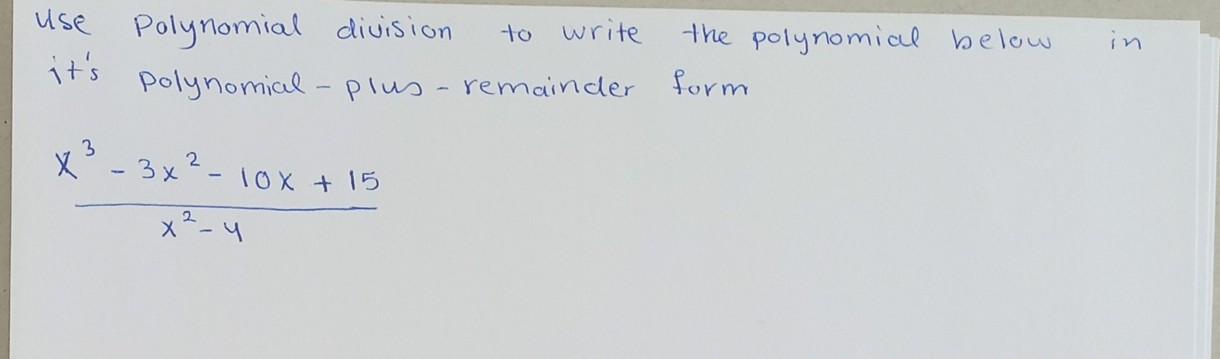 Use Polynomial division to write the polynomial below in
it's polynomial-plus-remainder form
x³ - 3x² - 10x + 15
x² - 4